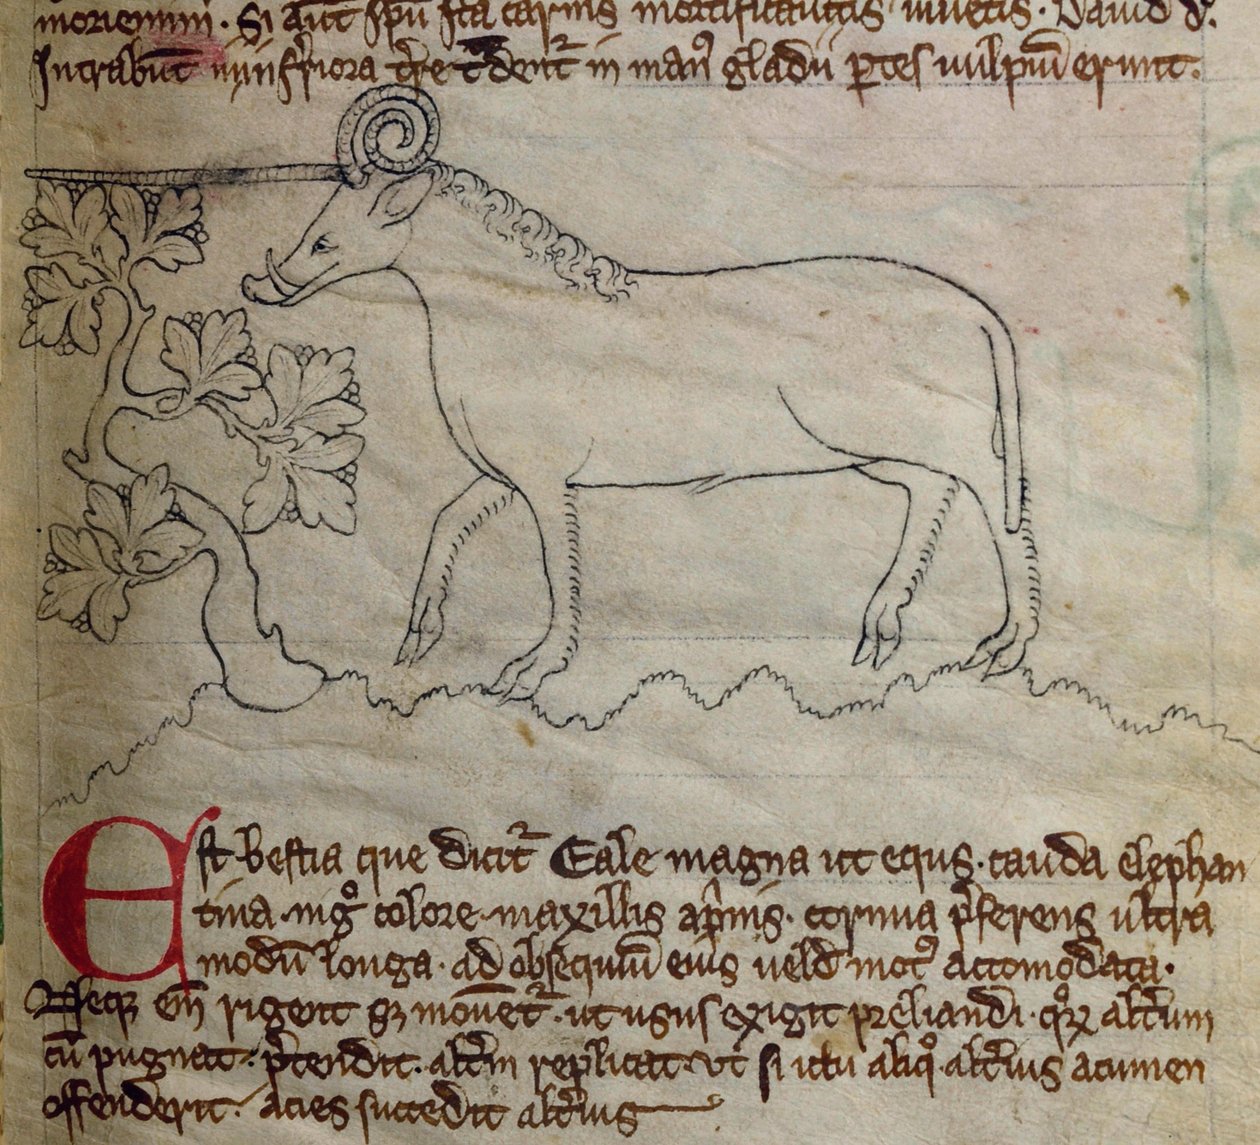 morienmini. Si aut̄ sp̄u fc̄a carnis mortificau̅tis viuetis. Dauid d'.
Intrabūt in inf̄iora tr̄e tͣdent̄ in man' gladii ꝑtes uulpiū erunt.
Est bestia que dicit̄ Eale magna ut equs. cauda elephan
tina nigͦ colore. maxillis apͥnis. cornua p̄ferens ultra
modū longa. ad obsequiū eius uelđ mot' accomodata.
eñ rigent sȝ mouēt̄. ut usus exigit preliandi. qͦꝝ alt̄um
cū pugnat. p̄tendit. alt̄m replicat. vt si ictu aliqͦ alt̄ius acumen
offenderit. acies succedit alt̄ius